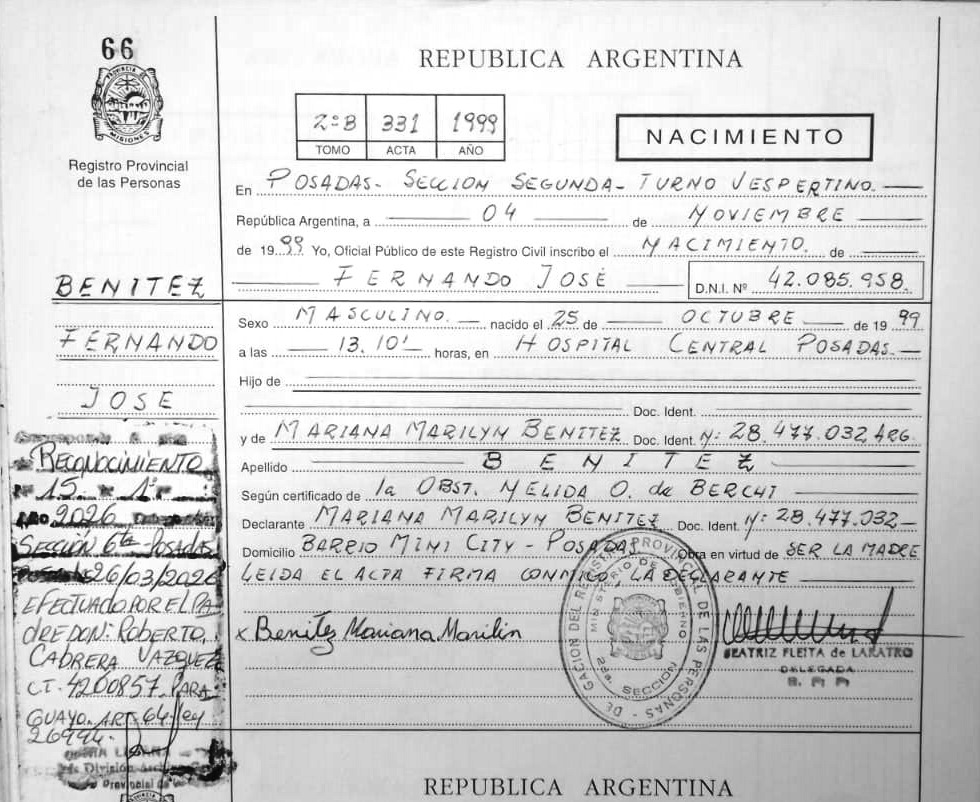 66
PROVINCIA DE MISIONES
Registro Provincial
de las Personas
REPUBLICA ARGENTINA
2ºB 331 1999
TOMO ACTA AÑO
NACIMIENTO
En POSADAS- SECCION SEGUNDA- TURNO VESPERTINO.
República Argentina, a 04 de NOVIEMBRE
de 1999 Yo, Oficial Público de este Registro Civil inscribo el NACIMIENTO. de
FERNANDO JOSÉ D.N.I. Nº 42.085.958.
Sexo MASCULINO. nacido el 25 de OCTUBRE de 1999
a las 13.10' horas, en HOSPITAL CENTRAL POSADAS.
Hijo de
Doc. Ident.
y de MARIANA MARILYN BENITEZ Doc. Ident. Nº: 28.477.032 ARG.
Apellido BENITEZ
Según certificado de la OBST. NELIDA O. de BERCHI
Declarante MARIANA MARILYN BENITEZ Doc. Ident. Nº: 28.477.032
Domicilio BARRIO MINI CITY - POSADAS Obra en virtud de SER LA MADRE
LEIDA EL ACTA FIRMA CONMIGO LA DECLARANTE
x Benitez Mariana Marilin
MINISTERIO DE GOBIERNO
2da. SECCION
BEATRIZ FLEITA de LARATRO
DELEGADA
R. P. P.
BENITEZ
FERNANDO
JOSE
RECONOCIMIENTO
15 1º
Año 2026
SECCIÓN 6ta - POSADAS
26/03/2026
EFECTUADO POR EL PA-
DRE DON: ROBERTO
CABRERA VAZQUEZ
C.I. 4200857. PARA-
GUAYO. ART 64 ley
26994.
REPUBLICA ARGENTINA